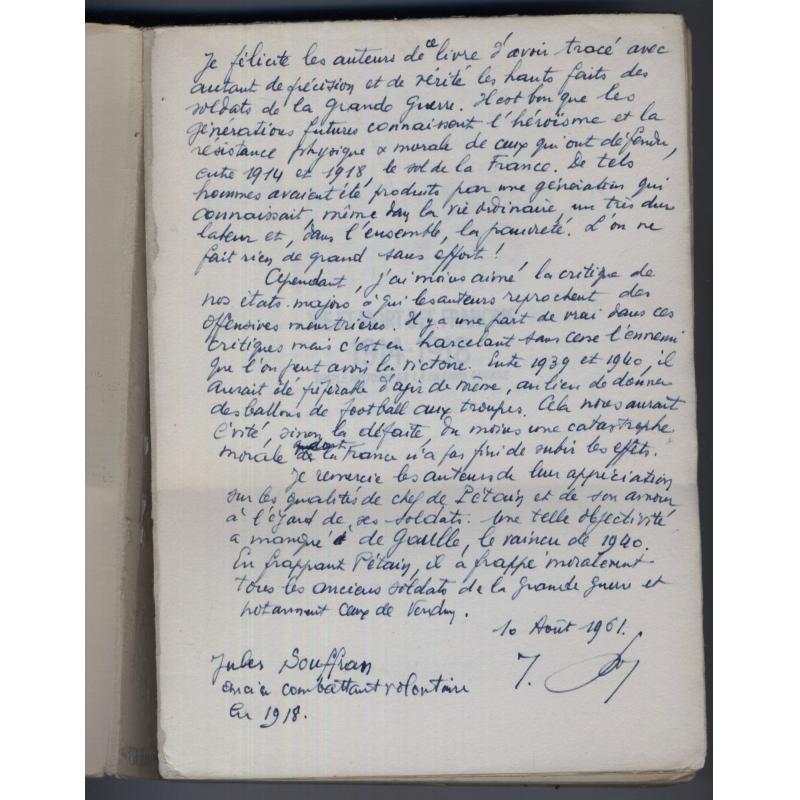 Je félicite les auteurs de ce livre d'avoir tracé avec
autant de précision et de vérité les hauts faits des
soldats de la grande guerre. Il est bon que les
générations futures connaissent l'héroïsme et la
résistance physique & morale de ceux qui ont défendu,
entre 1914 et 1918, le sol de la France. De tels
hommes avaient été produits par une génération qui
connaissait, même dans la vie ordinaire, un très dur
labeur et, dans l'ensemble, la pauvreté. L'on ne
fait rien de grand sans effort !
Cependant, j'ai moins aimé la critique de
nos états-majors à qui les auteurs reprochent des
offensives meurtrières. Il y a une part de vrai dans ces
critiques mais c'est en harcelant sans cesse l'ennemi
que l'on peut avoir la victoire. Entre 1939 et 1940, il
aurait été préférable d'agir de même, au lieu de donner
des ballons de football aux troupes. Cela nous aurait
évité, sinon la défaite, du moins une catastrophe
morale dont la France n'a pas fini de subir les effets.
Je remercie les auteurs de leur appréciation
sur les qualités de chef de Pétain et de son amour
à l'égard de ses soldats. Une telle objectivité
a manqué à de Gaulle, le vaincu de 1940.
En frappant Pétain, il a frappé moralement
tous les anciens soldats de la grande guerre et
notamment ceux de Verdun.
10 Août 1961.
Jules Souffran
ancien combattant volontaire
en 1918.
J.